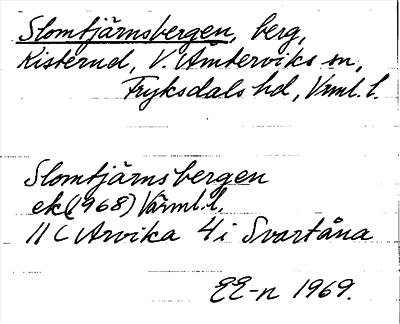 Slomtjärnsbergen, berg,
Kisterud, V. Ämterviks sn,
Fryksdals hd, Vrml. l.
Slomtjärnsbergen
ek (1968) Värml. l.
11 C Arvika 4 i Svartåna
EE-n 1969.